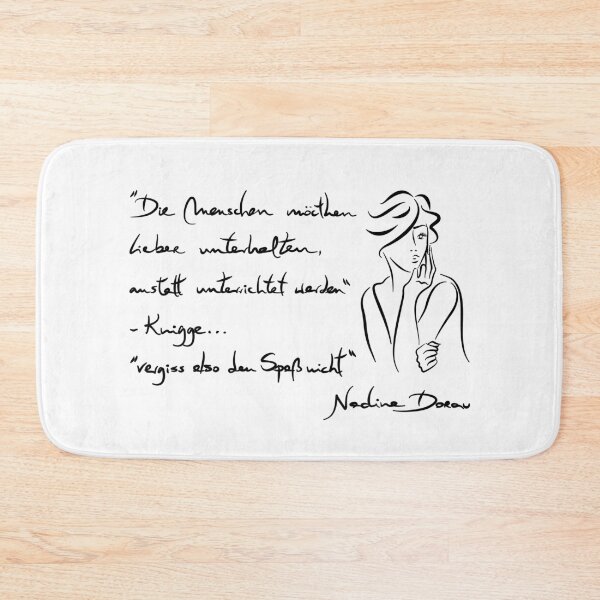 "Die Menschen möchten
lieber unterhalten,
anstatt unterrichtet werden"
- Knigge...
"vergiss also den Spaß nicht"
Nadine Dorau